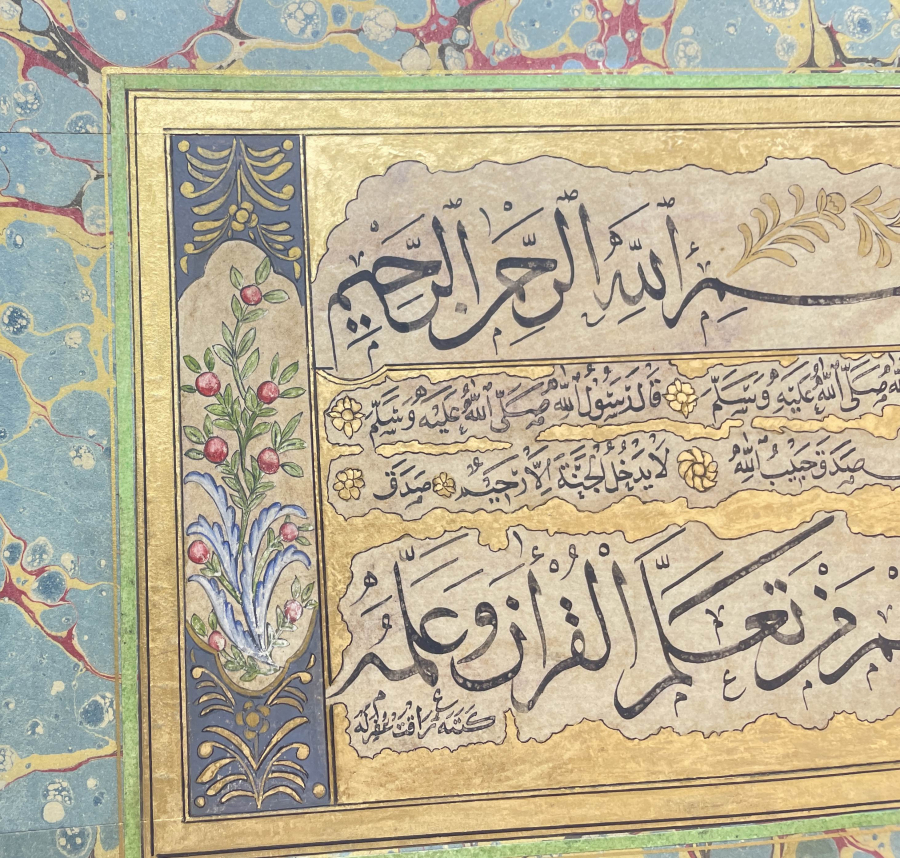 بِسْمِ اللّٰهِ الرَّحْمٰنِ الرَّحِيْمِ
صَلَّى اللّٰهُ عَلَيْهِ وَسَلَّمَ قَالَ رَسُوْلُ اللّٰهِ صَلَّى اللّٰهُ عَلَيْهِ وَسَلَّمَ
صَدَقَ حَبِيْبُ اللّٰهِ لَا يَدْخُلُ الْجَنَّةَ اِلَّا رَحِيْمٌ صَدَقَ
مَنْ تَعَلَّمَ الْقُرْاٰنَ وَعَلَّمَهُ
كتبه عراقت غفرله